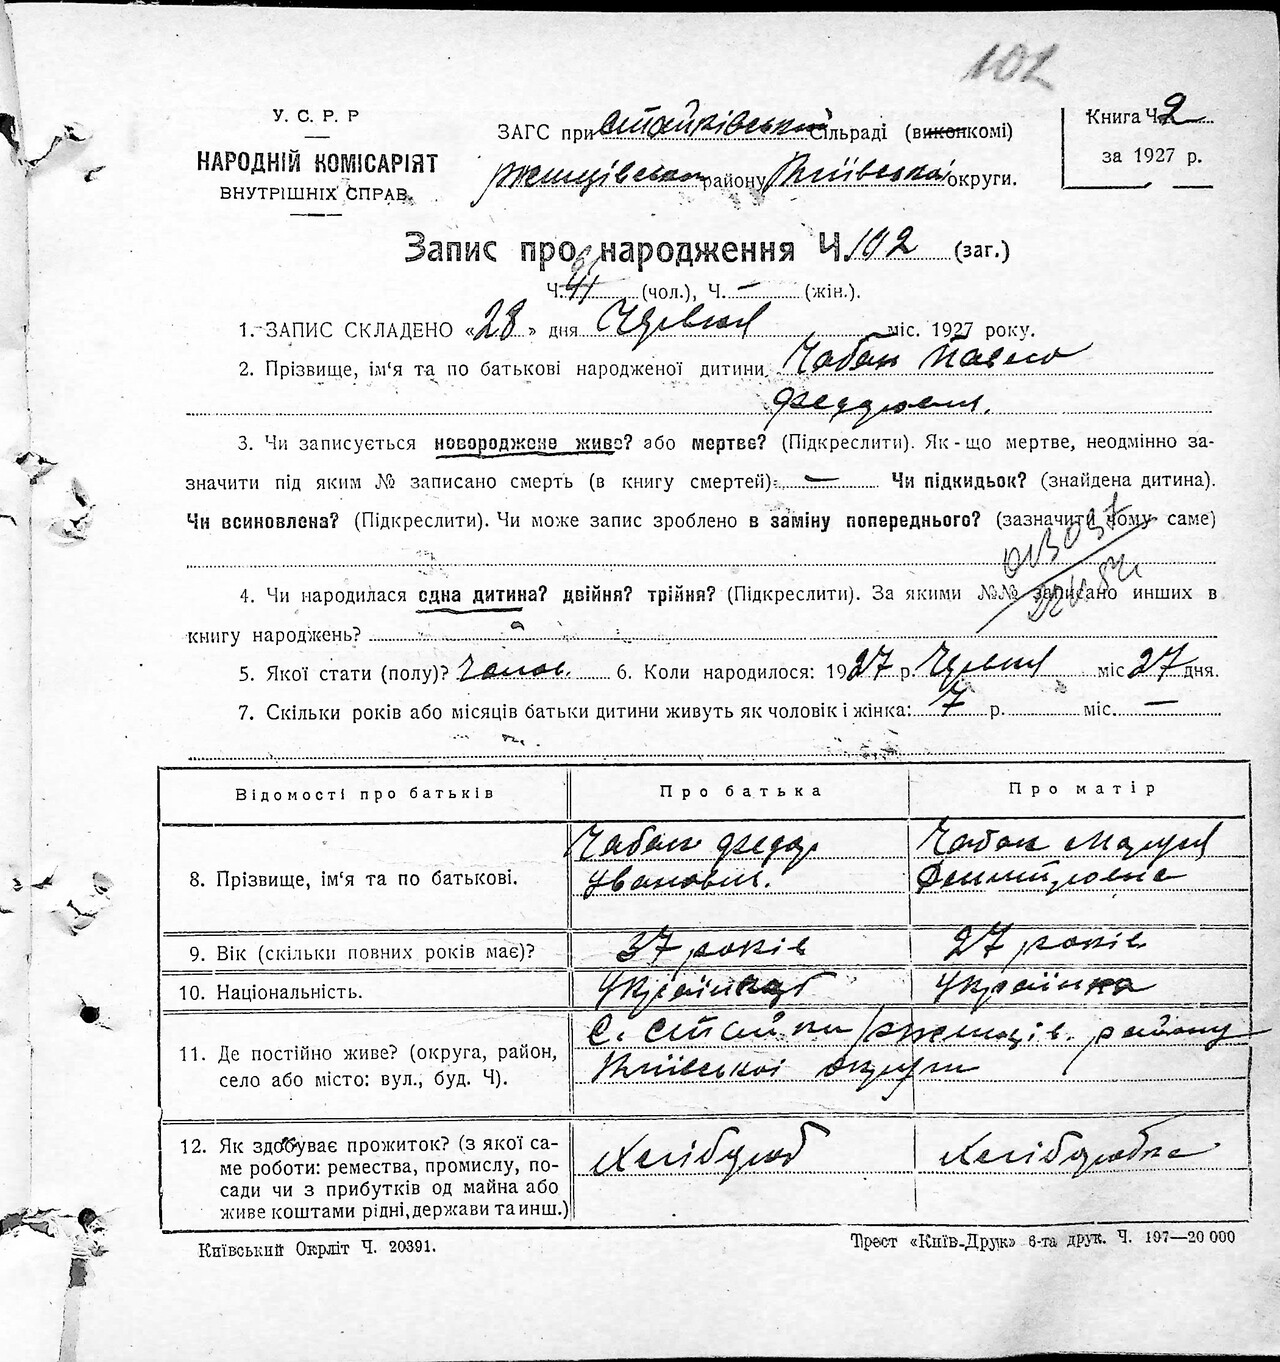 102
У. С. Р. Р
НАРОДНІЙ КОМІСАРІЯТ
ВНУТРІШНІХ СПРАВ.
ЗАГС при Стайківській Сільраді (виконкомі)
Ржищівськ району Київської округи.
Книга Ч. 2
за 1927 р.
Запис про народження Ч. 102 (заг.)
Ч. (чол.), Ч. — (жін.).
1. ЗАПИС СКЛАДЕНО «28» дня Червня міс. 1927 року.
2. Прізвище, ім‘я та по батькові народженої дитини Чабан Павло
Федорович.
3. Чи записується новороджене живе? або мертве? (Підкреслити). Як-що мертве, неодмінно за-
значити під яким № записано смерть (в книгу смертей): — Чи підкидьок? (знайдена дитина).
Чи всиновлена? (Підкреслити). Чи може запис зроблено в заміну попереднього? (зазначити чому саме)
4. Чи народилася одна дитина? двійня? трійня? (Підкреслити). За якими №№ записано инших в
книгу народжень?
5. Якої стати (полу)? Чолов. 6. Коли народилося: 1927 р. Червня міс 27 дня.
7. Скільки років або місяців батьки дитини живуть як чоловік і жінка: 7 р. міс. —
Відомості про батьків Про батька Про матір
8. Прізвище, ім‘я та по батькові. Чабан Федор Чабан Марія
Іванович. Дмитровна
9. Вік (скільки повних років має)? 37 років 27 років
10. Національність. Українець Українка
11. Де постійно живе? (округа, район,
село або місто: вул., буд. Ч).
С. Стайки Ржищів. району
Київської округи
12. Як здобуває прожиток? (з якої са-
ме роботи: ремества, промислу, по-
сади чи з прибутків од майна або
живе коштами рідні, держави та инш.)
Хлібороб Хліборобка
Київський Окрліт Ч. 20391.
Трест «Київ-Друк» 6-та друк. Ч. 197—20 000